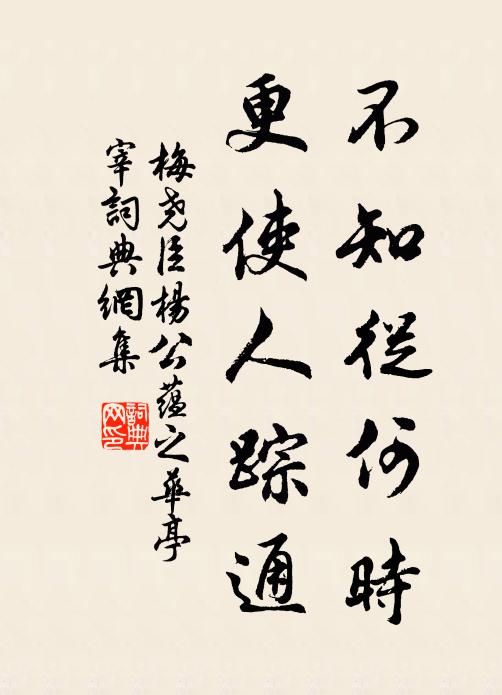 不知從何時
更使人踪通
梅堯臣楊公蘊之華亭
宰詞典網集
詞典
网印